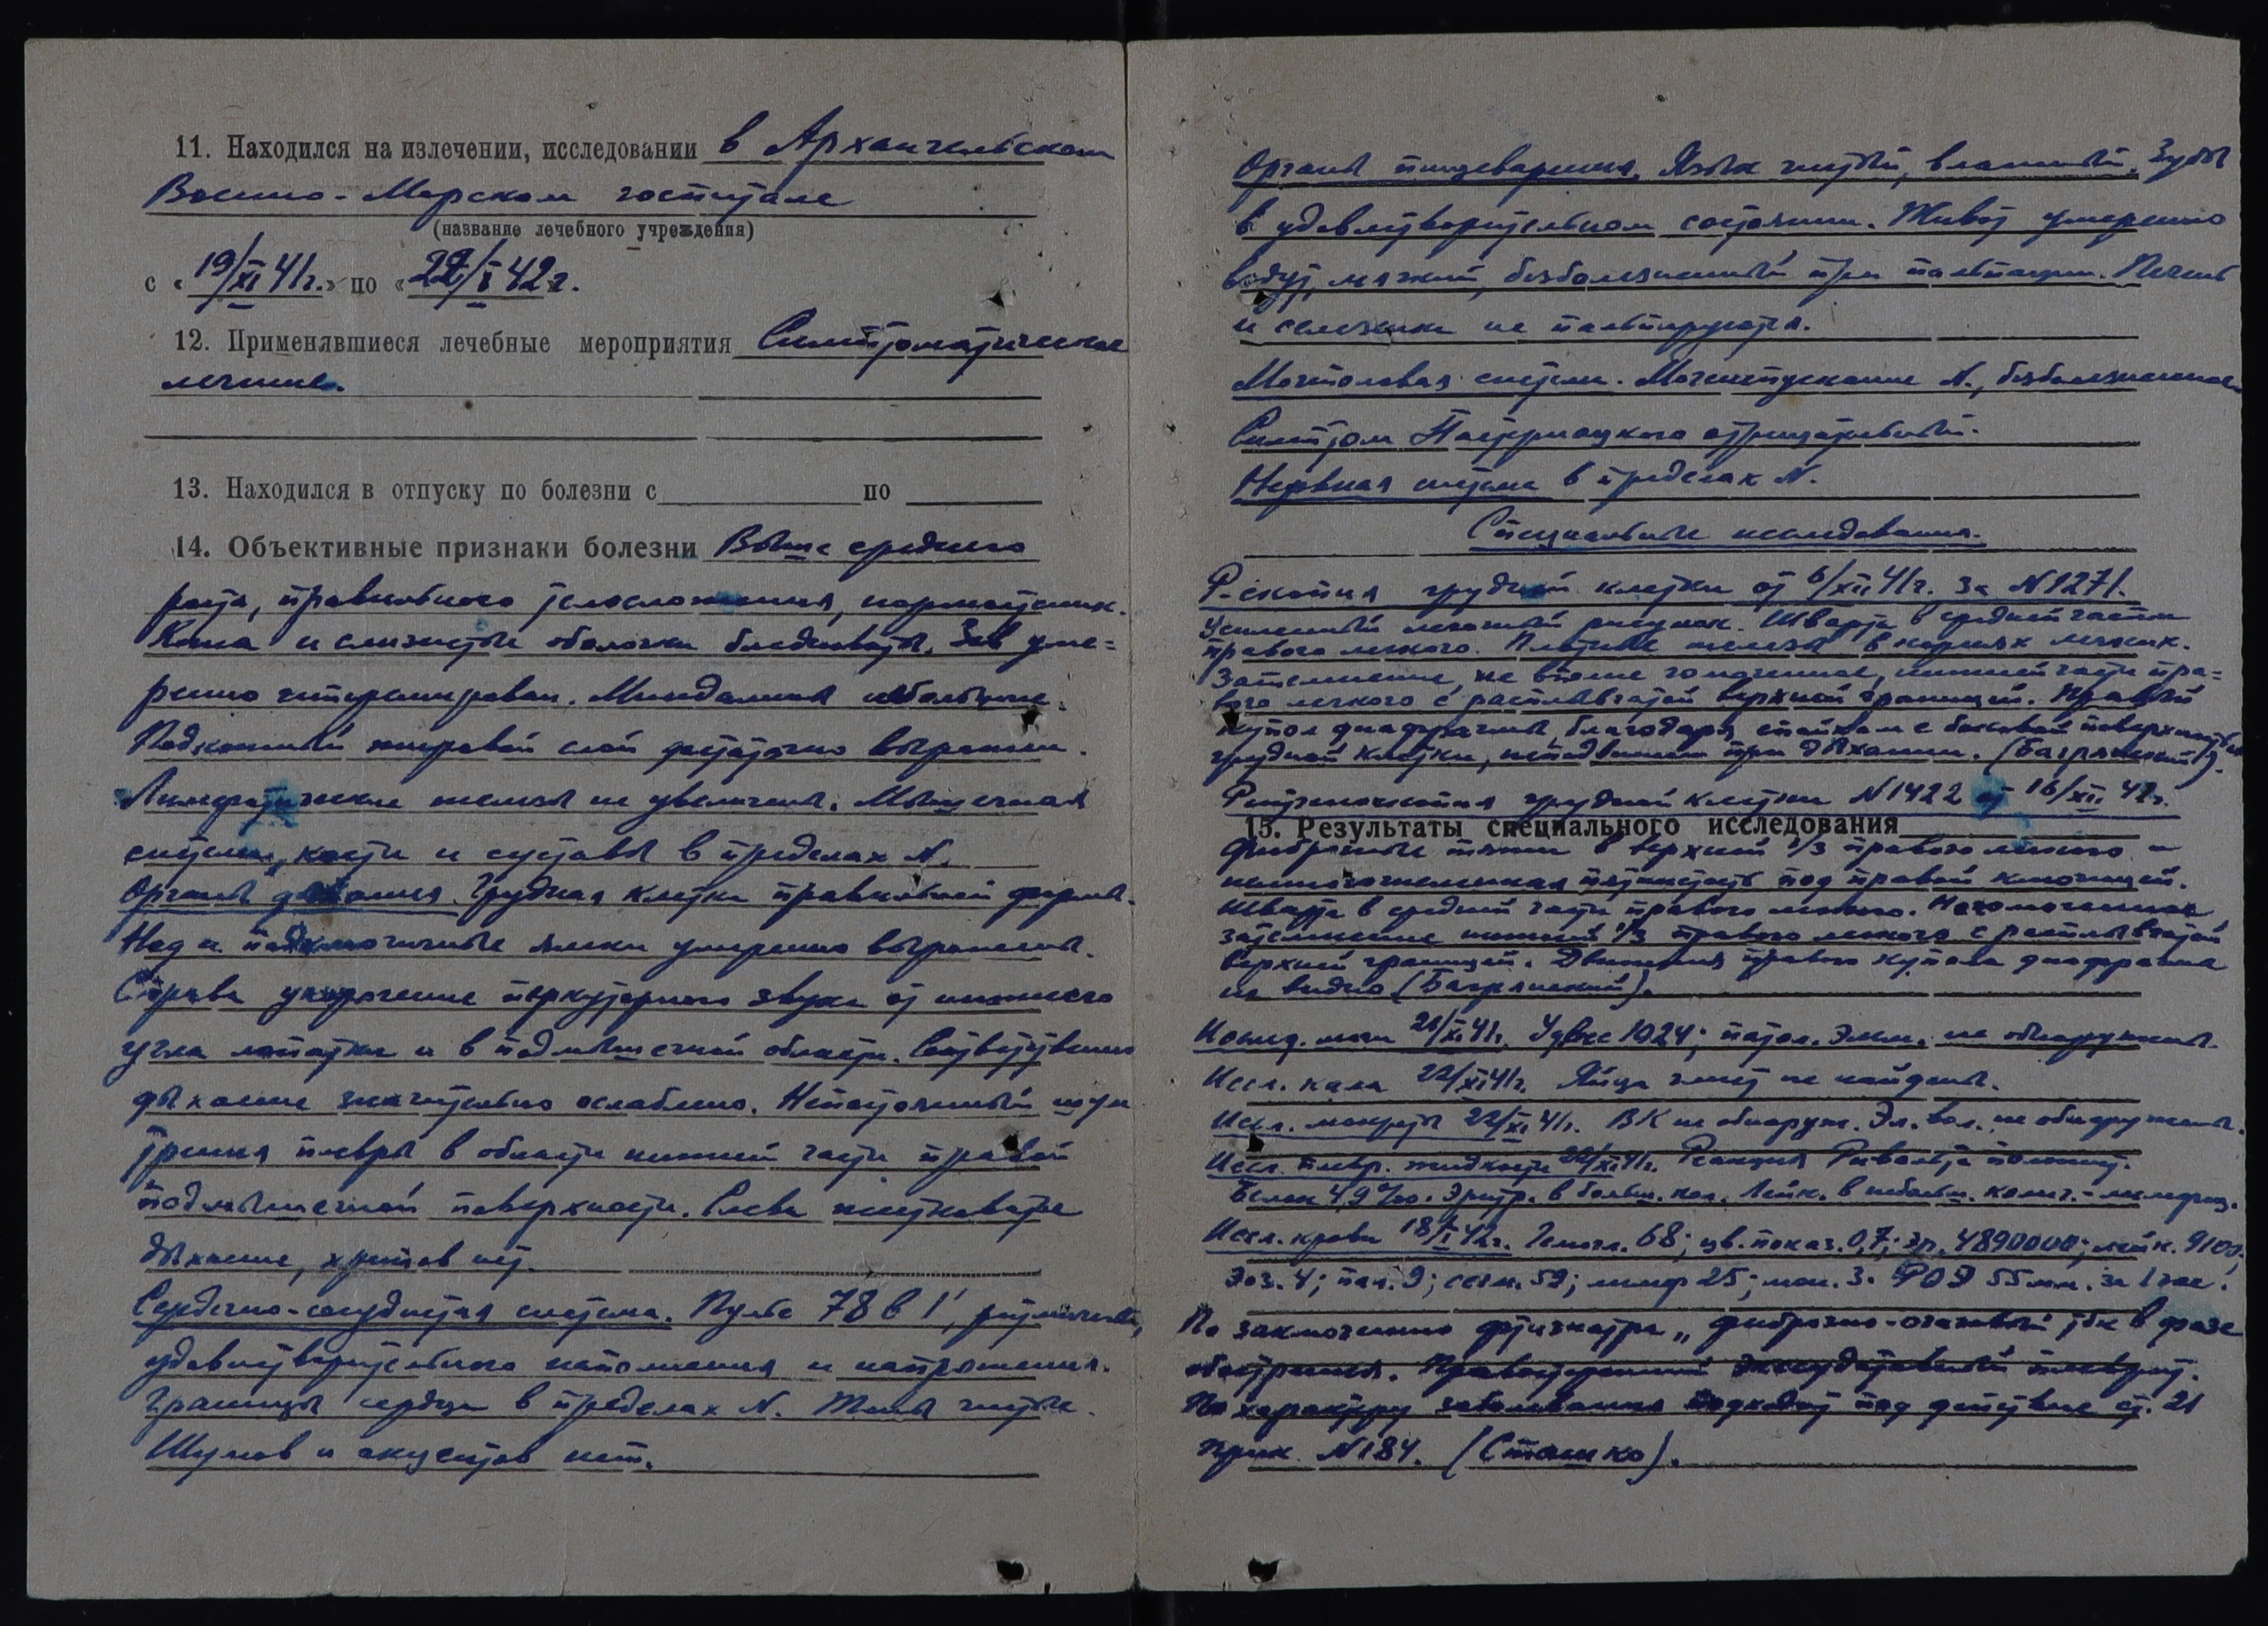 11. Находился на излечении, исследовании в Архангельском
Военно-Морском госпитале
(название лечебного учреждения)
с «19/XI 41г.» по «22/I 42г.
12. Применявшиеся лечебные мероприятия Симптоматическое
лечение.
13. Находился в отпуску по болезни с по
14. Объективные признаки болезни Выше среднего
роста, правильного телосложения, нормостеник.
Кожа и слизистые оболочки бледноваты. Зев уме=
ренно гиперемирован. Миндалины небольшие.
Подкожный жировой слой достаточно выражен.
Лимфатические железы не увеличены. Мышечная
система, кости и суставы в пределах N.
Органы дыхания. Грудная клетка правильной формы.
Над и подключичные ямки умеренно выражены.
Справа укорочение перкуторного звука от нижнего
угла лопатки и в подмышечной области. Соответственно
дыхание значительно ослаблено. Непостоянный шум
трения плевры в области нижней части правой
подмышечной поверхности. Слева жестковатое
дыхание, хрипов нет.
Сердечно-сосудистая система. Пульс 78 в 1', ритмичный,
удовлетворительного наполнения и напряжения.
Границы сердца в пределах N. Тоны чистые.
Шумов и акцентов нет.
Органы пищеварения. Язык чистый, влажный. Зубы
в удовлетворительном состоянии. Живот умеренно
вздут, мягкий, безболезненный при пальпации. Печень
и селезенка не пальпируются.
Мочеполовая система. Мочеиспускание N., безболезненное
Симптом Пастернацкого отрицательный.
Нервная система в пределах N.
Специальные исследования.
Р-скопия грудной клетки от 6/XII 41г. за N1271.
Усиленный легочный рисунок. Шварта в средней части
правого легкого. Плотные железы в корнях легких.
Затемнение, не вполне гомогенное, нижней части пра=
вого легкого с расплывчатой верхней границей. Правый
купол диафрагмы, благодаря спайкам с боковой поверхностью
грудной клетки, неподвижен при дыхании. (Багрянский).
Рентгеноскопия грудной клетки N1422 от 16/XII 42г.
15. Результаты специального исследования
Фиброзные тяжи в верхней 1/3 правого легкого и
пятнистость под правой ключицей.
Шварта в средней части правого легкого. Негомогенное
затемнение нижней 1/3 правого легкого с расплывчатой
верхней границей. Движения правого купола диафрагмы
не видно (Багрянский).
Исслед. мочи 21/XI 41г. Уд. вес 1024; патол. элем. не обнаружены.
Иссл. кала 22/XI 41г. Яйца глист не найдены.
Иссл. мокроты 22/XI 41г. ВК не обнаруж. Эл. вол. не обнаружены.
Иссл. плевр. жидкости 22/XI 41г. Реакция Ривальта положит.
Белок 4,9‰. Эритр. в больш. кол. Лейк. в небольш. колич. - лимфоц.
Иссл. крови 18/I 42г. Гемогл. 68; цв. показ. 0,7; эр. 4890000; лейк. 9100;
Эоз. 4; пал. 9; сегм. 59; лимф 25; мон. 3. РОЭ 55мм. за 1 час.
По заключению фтизиатра „фиброзно-очаговый тбк в фазе
обострения. Правосторонний экссудативный плеврит.
По характеру заболевания подходит под действие ст. 21
прик. N184. (Сташко).